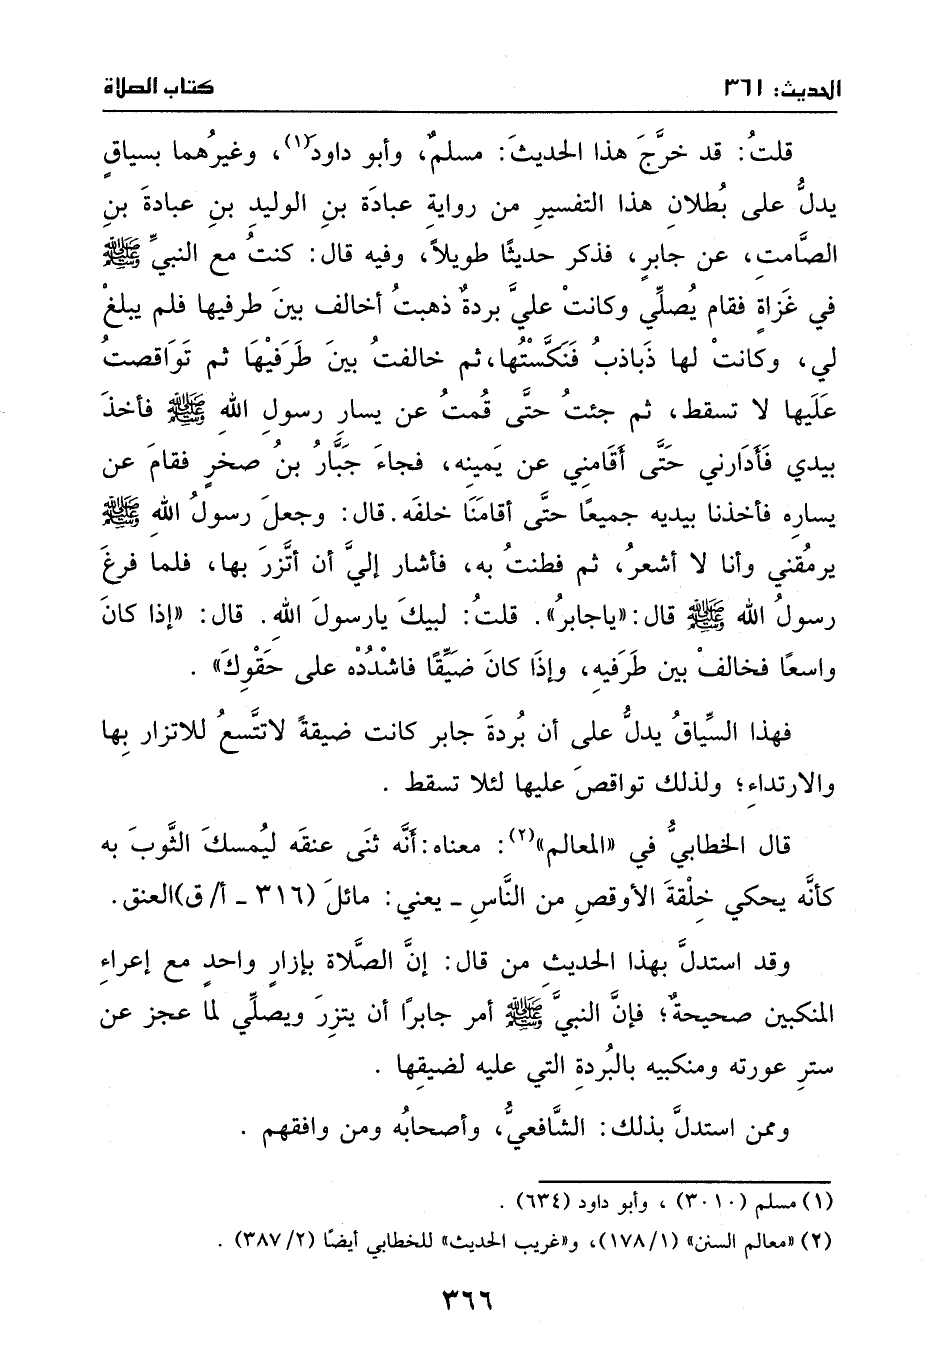 الحديث: ٣٦١ كتاب الصلاة
قلتُ: قد خرَّجَ هذا الحديثَ: مسلمٌ، وأبو داود(١)، وغيرُهما بسياقٍ
يدلُّ على بُطلانِ هذا التفسيرِ من روايةِ عبادَة بنِ الوليدِ بنِ عبادةَ بنِ
الصَّامتِ، عن جابرٍ، فذكر حديثًا طويلاً، وفيه قال: كنتُ مع النبيِّ ﷺ
في غَزاةٍ فقام يُصلِّي وكانتْ عليَّ بردةٌ ذهبتُ أخالف بينَ طرفيها فلم يبلغْ
لي، وكانتْ لها ذَباذبُ فَنَكَّسْتُها، ثم خالفتُ بينَ طَرَفيْهَا ثم تَوَاقصتُ
عَلَيها لا تسقط، ثم جئتُ حتَّى قُمتُ عن يسارِ رسولِ اللهِ ﷺ فأخذَ
بيدي فَأَدَارني حَتَّى أَقَامنِي عن يَمينِه، فجاءَ جَبَّارُ بنُ صخرٍ فقامَ عن
يسارِه فأخذنا بيديه جميعًا حتَّى أقامَنَا خلفَه. قال: وجعلَ رسولُ اللهِ ﷺ
يرمُقني وأنا لا أشعرُ، ثم فطنتُ به، فأشار إليَّ أن أتَّزرَ بها، فلما فرغَ
رسولُ الله ﷺ قال: «ياجابرُ». قلتُ: لبيكَ يارسولَ اللهِ. قال: «إذا كانَ
واسعًا فخالفْ بين طَرَفيهِ، وإذَا كانَ ضَيِّقًا فاشْدُدْه على حَقْوِكَ» .
فهذا السِّياقُ يدلُّ على أن بُردةَ جابر كانت ضيقةً لاتتَّسعُ للاتزار بِها
والارتداءِ؛ ولذلك تواقصَ عليها لئلا تسقط .
قال الخطابيُّ في «المعالم»(٢): معناه: أنَّه ثنَى عنقَه ليُمسكَ الثَّوبَ به
كأنَّه يحكي خِلْقةَ الأوقصِ من النَّاسِ ـ يعني: مائلَ (٣١٦ ـ أ/ ق)العنق.
وقد استدلَّ بهذا الحديثِ من قال: إنَّ الصَّلاة بإزارٍ واحدٍ مع إعراءِ
المنكبين صحيحةٌ؛ فإنَّ النبيَّ ﷺ أمر جابرًا أن يتزِرَ ويصلِّي لما عجز عن
سترِ عورته ومنكبيه بالبُردةِ التي عليه لضيقِها .
وممن استدلَّ بذلك: الشَّافعيُّ، وأصحابُه ومن وافقهم .
(١) مسلم (٣٠١٠) ، وأبو داود (٦٣٤) .
(٢) «معالم السنن» (١/١٧٨)، و«غريب الحديث» للخطابي أيضًا (٣٨٧/٢) .
٣٦٦